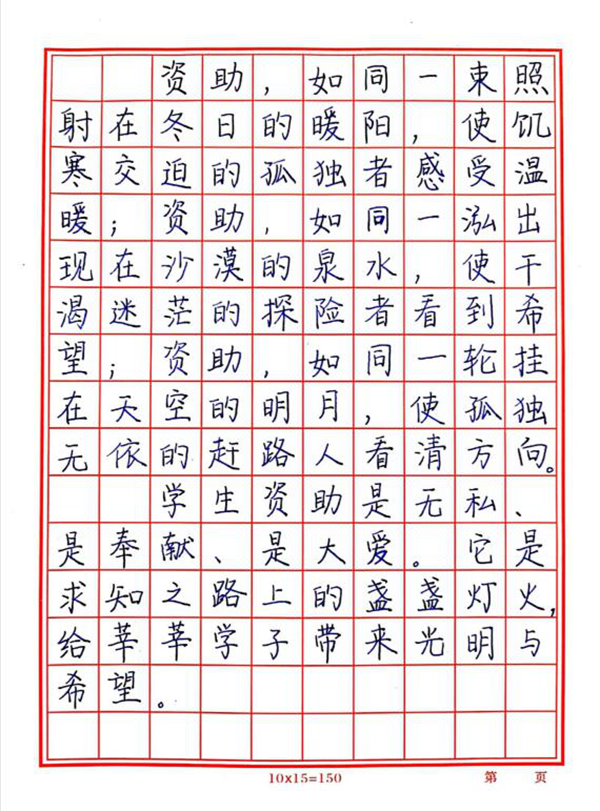 资助，如同一束照
射在冬日的暖阳，使饥
寒交迫的孤独者感受温
暖；资助，如同一泓出
现在沙漠的泉水，使干
渴迷茫的探险者看到希
望；资助，如同一轮挂
在天空的明月，使孤独
无依的赶路人看清方向。
学生资助是无私、
是奉献、是大爱。它是
求知之路上的盏盏灯火，
给莘莘学子带来光明与
希望。
10x15=150 第 页